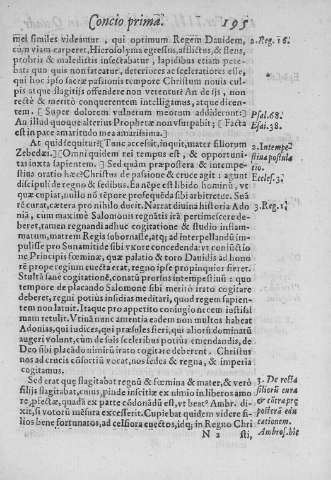 Concio prima. 195
mei similes videantur, qui optimum Regem Dauidem, 2. Reg. 16.
cùm viam carperet, Hierosolymis egressus, afflictus, & flens,
probris & maledictis insectabatur, lapidibus etiam pete-
bat: quo quis non fateatur, deteriores ac sceleratiores esse,
qui hoc ipso sacræ passionis tempore Christum nouis cul-
pis atque flagitijs offendere non verentur? An de ijs, non
rectè & meritò conquerentem intelligamus, atque dicen-
tem. [Super dolorem vulnerum meorum addiderunt:] Psal. 68.
An illud quoque alterius Prophetæ non vsurpabit; [Facta Esai. 38.
est in pace amaritudo mea amarissima.]
At quid sequitur? [Tunc accessit, inquit, mater filiorum 2. Intempe-
Zebedæi.] [Omni quidem rei tempus est, & opportuni- stiua postula
tas iuxta sapientem.] Sed quàm præpostera & intempe- tio.
stiua oratio hæc? Christus de passione & cruce agit: agunt Ecclef. 3.
discipuli de regno & sedibus. Ea nẽpe est libido hominũ, vt
quæ cupiat, nullo nõ tẽpore prosequẽda sibi arbitretur. Seuà
rẽ curat, cætera pro nihilo ducit. Narrat diuina historia Ado 3. Reg. 1.
nià, cum maximè Salomonis regnãtis irã pertimescere de-
beret, tamen regnandi adhuc cogitatione & studio inflam-
matum, matrem Regis subornasse, atq; ad interpellandũ im-
pulisse pro Sunamitide sibi vxore concedenda: vt coniũctio
ne Principis fœminæ, quæ palatio & toro Dauidis ad hono
rẽ prope regium euecta erat, regno ipse propinquior fieret.
Stultà sanè cogitationẽ, conatũ prorsus intempestiuũ: quo
tempore de placando Salomone sibi meritò irato cogitare
deberet, regni potius insidias meditari, quod regem sapien-
tem non latuit. Itaque pro appetito coniugio necem iustissi
mam retulit. Vtinã nunc amentia eodem non multos habeat
Adonias, qui iudices, qui præsules fieri, qui aliorũ dominatũ
augeri volunt, cùm de suis sceleribus potius emendandis, de
Deo sibi placãdo nimirũ irato cogitare deberent. Christus
nos ad crucis cõsortiũ vocat, nos sedes & regna, & imperia
cogitamus.
Sed erat quæ flagitabat regnũ & fœmina & mater, & verò 3. De recta
filijs flagitabat, cuius, pinde inscitiæ ex nimio in liberos amo filiorũ cura
re, pietatæ, quadã ex parte cõdonãdũ est, vt beatº Ambr. di- & cõtra præ
xit, si votorũ mẽsura excesserit. Cupiebat quidem videre fi- posterã edu
lios bene fortunatos, ad celsiora euectos, idq; in Regno Chri cationem.
Ambros. hic
N 2 sti,